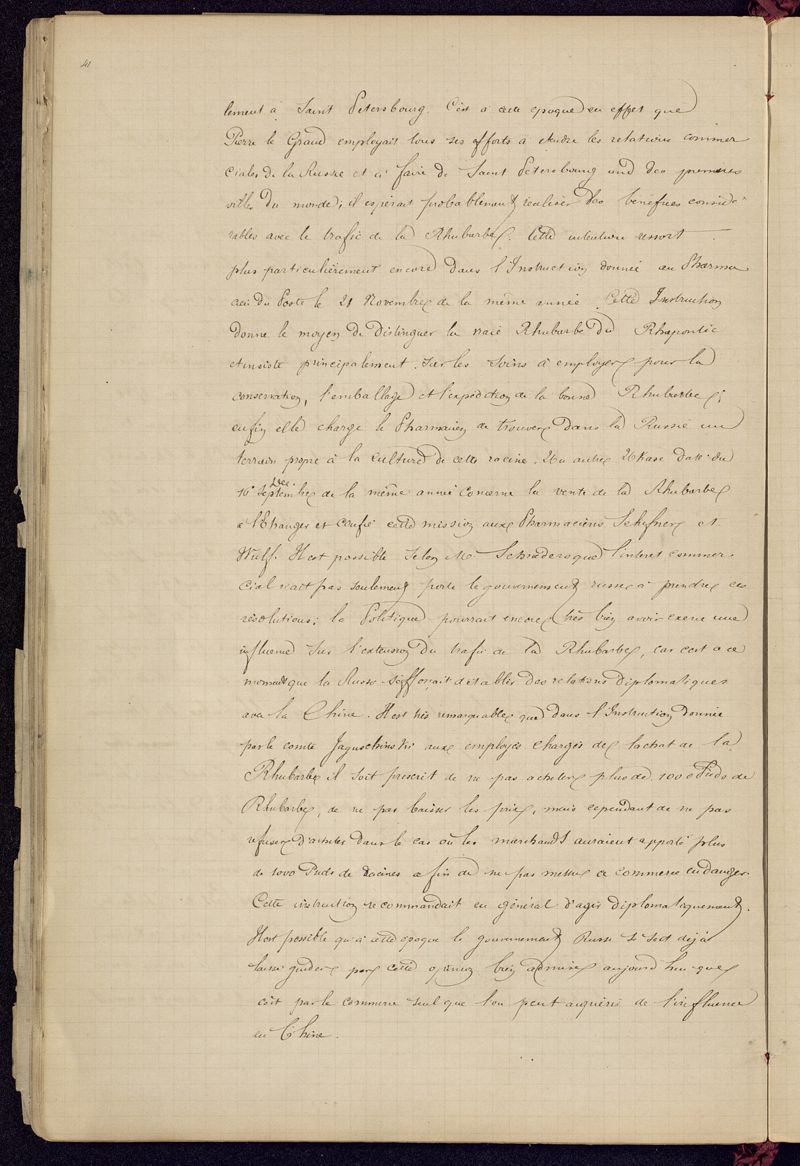 41
lement à Saint Petersbourg. C'est a cette epoque en effet que
Pierre le Grand employait tous ses efforts à etendre les relations commer
ciales de la Russie et à faire de Saint Petersbourg une des premieres
villes du monde; il espérait probablement realiser des benefices considé
rables avec le trafic de la Rhubarbe. Cette intention ressort
plus particulièrement encore dans l'Instruction donnée au Pharma
cien du Poste le 21 Novembre de la même année. Cette Instruction
donne le moyen de Distinguer la vraie Rhubarbe du Rhapontic
et insiste principalement sur les soins à employer pour la
conservation, l'emballage et l'expedition de la bonne Rhubarbe;
enfin elle charge le Pharmacien de trouver dans la Russie un
terrain propre à la culture de cette racine. Un autre Ukase daté du
16 Septembre Dec. de la même année concerne la vente de la Rhubarbe
a l'Etranger et confie cette mission aux Pharmaciens et
Wulf. Il est possible selon Mr Schrøders que l'interet commer
cial n'ait pas seulement porté le gouvernement russe à prendre ces
résolutions; la Politique pourrait encore très bien avoir exercé une
influence sur l'extension du trafic de la Rhubarbe, car c'est a ce
moment que la Russie s'efforçait d'etablir des relations diplomatiques
avec la Chine. Il est très remarquable que dans l'Instruction donnée
par le comte Jaguschinski aux employés chargés de l'achat de la
Rhubarbe il soit prescrit de ne pas acheter plus de 1000 Puds de
Rhubarbe, de ne pas baisser les prix, mais cependant de ne pas
refuser d'acheter dans le cas où les marchands auraient apporté plus
de 1000 Puds de racines afin de ne pas mettre ce commerce en danger.
Cette instruction recommandait en général d'agir diplomatiquement.
Il est possible qu'à cette epoque le gouvernement Russe se soit déjà
laissé guider par cette opinion bien admise aujourd'hui que
c'est par le commerce seul que l'on peut acquérir de l'influence
en Chine.